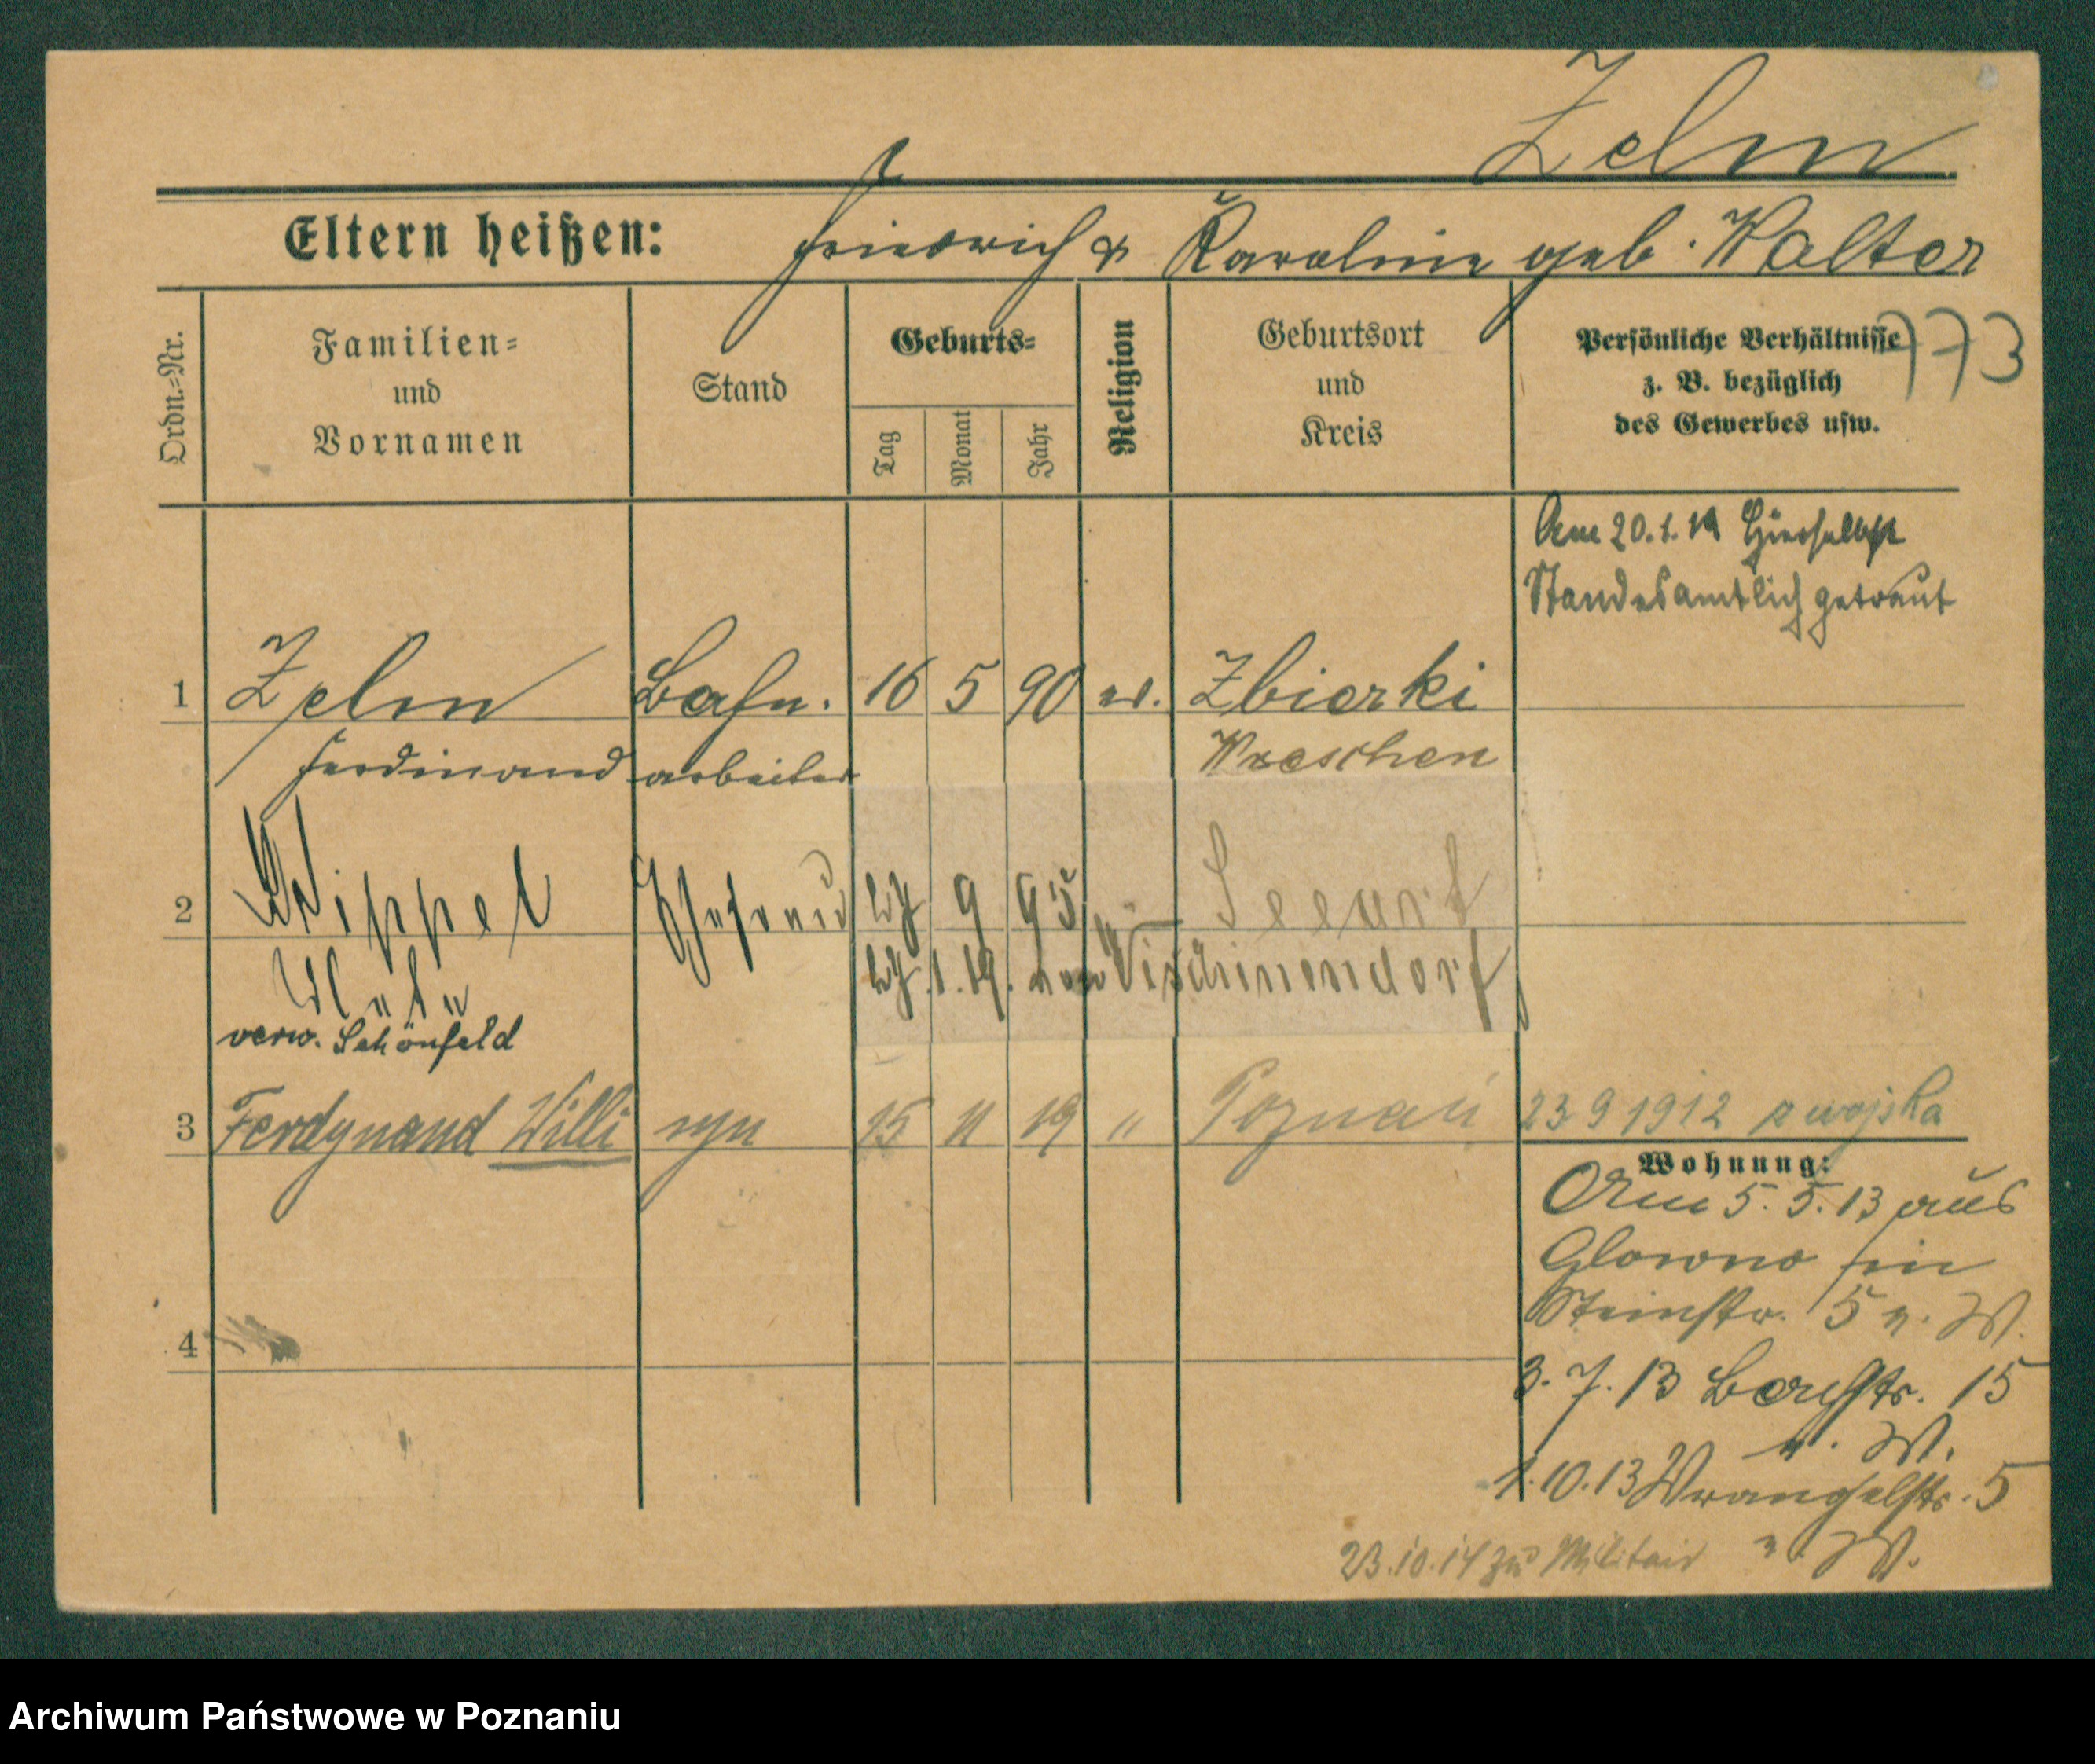 Zelm
Eltern heißen: Friedrich & Karoline geb. Walter
Ordn.=Nr.
Familien=
und
Vornamen
Stand
Geburts=
Tag
Monat
Jahr
Religion
Geburtsort
und
Kreis
Persönliche Verhältnisse
z. B. bezüglich
des Gewerbes usw.
773
Am 20.1.19 hierselbst
Standesamtlich getraut
1 Zelm Bahn. 16 5 90 ev. Zbierki
Ferdinand arbeiter Wreschen
2 Wippel Ehefrau 9 95 "
1.19. von
verw. Schönfeld
3 Ferdynand Willi syn 15 11 19 " Poznań
23 9 1912 z wojska
Wohnung:
Am 5.5.13 aus
Glowno in
Steinstr. 5 v. W.
4
3.7.13 Bachstr. 15
v. W.
1.10.13 Wrangelstr. 5
v. W.
23.10.14 zu Militair
Archiwum Państwowe w Poznaniu